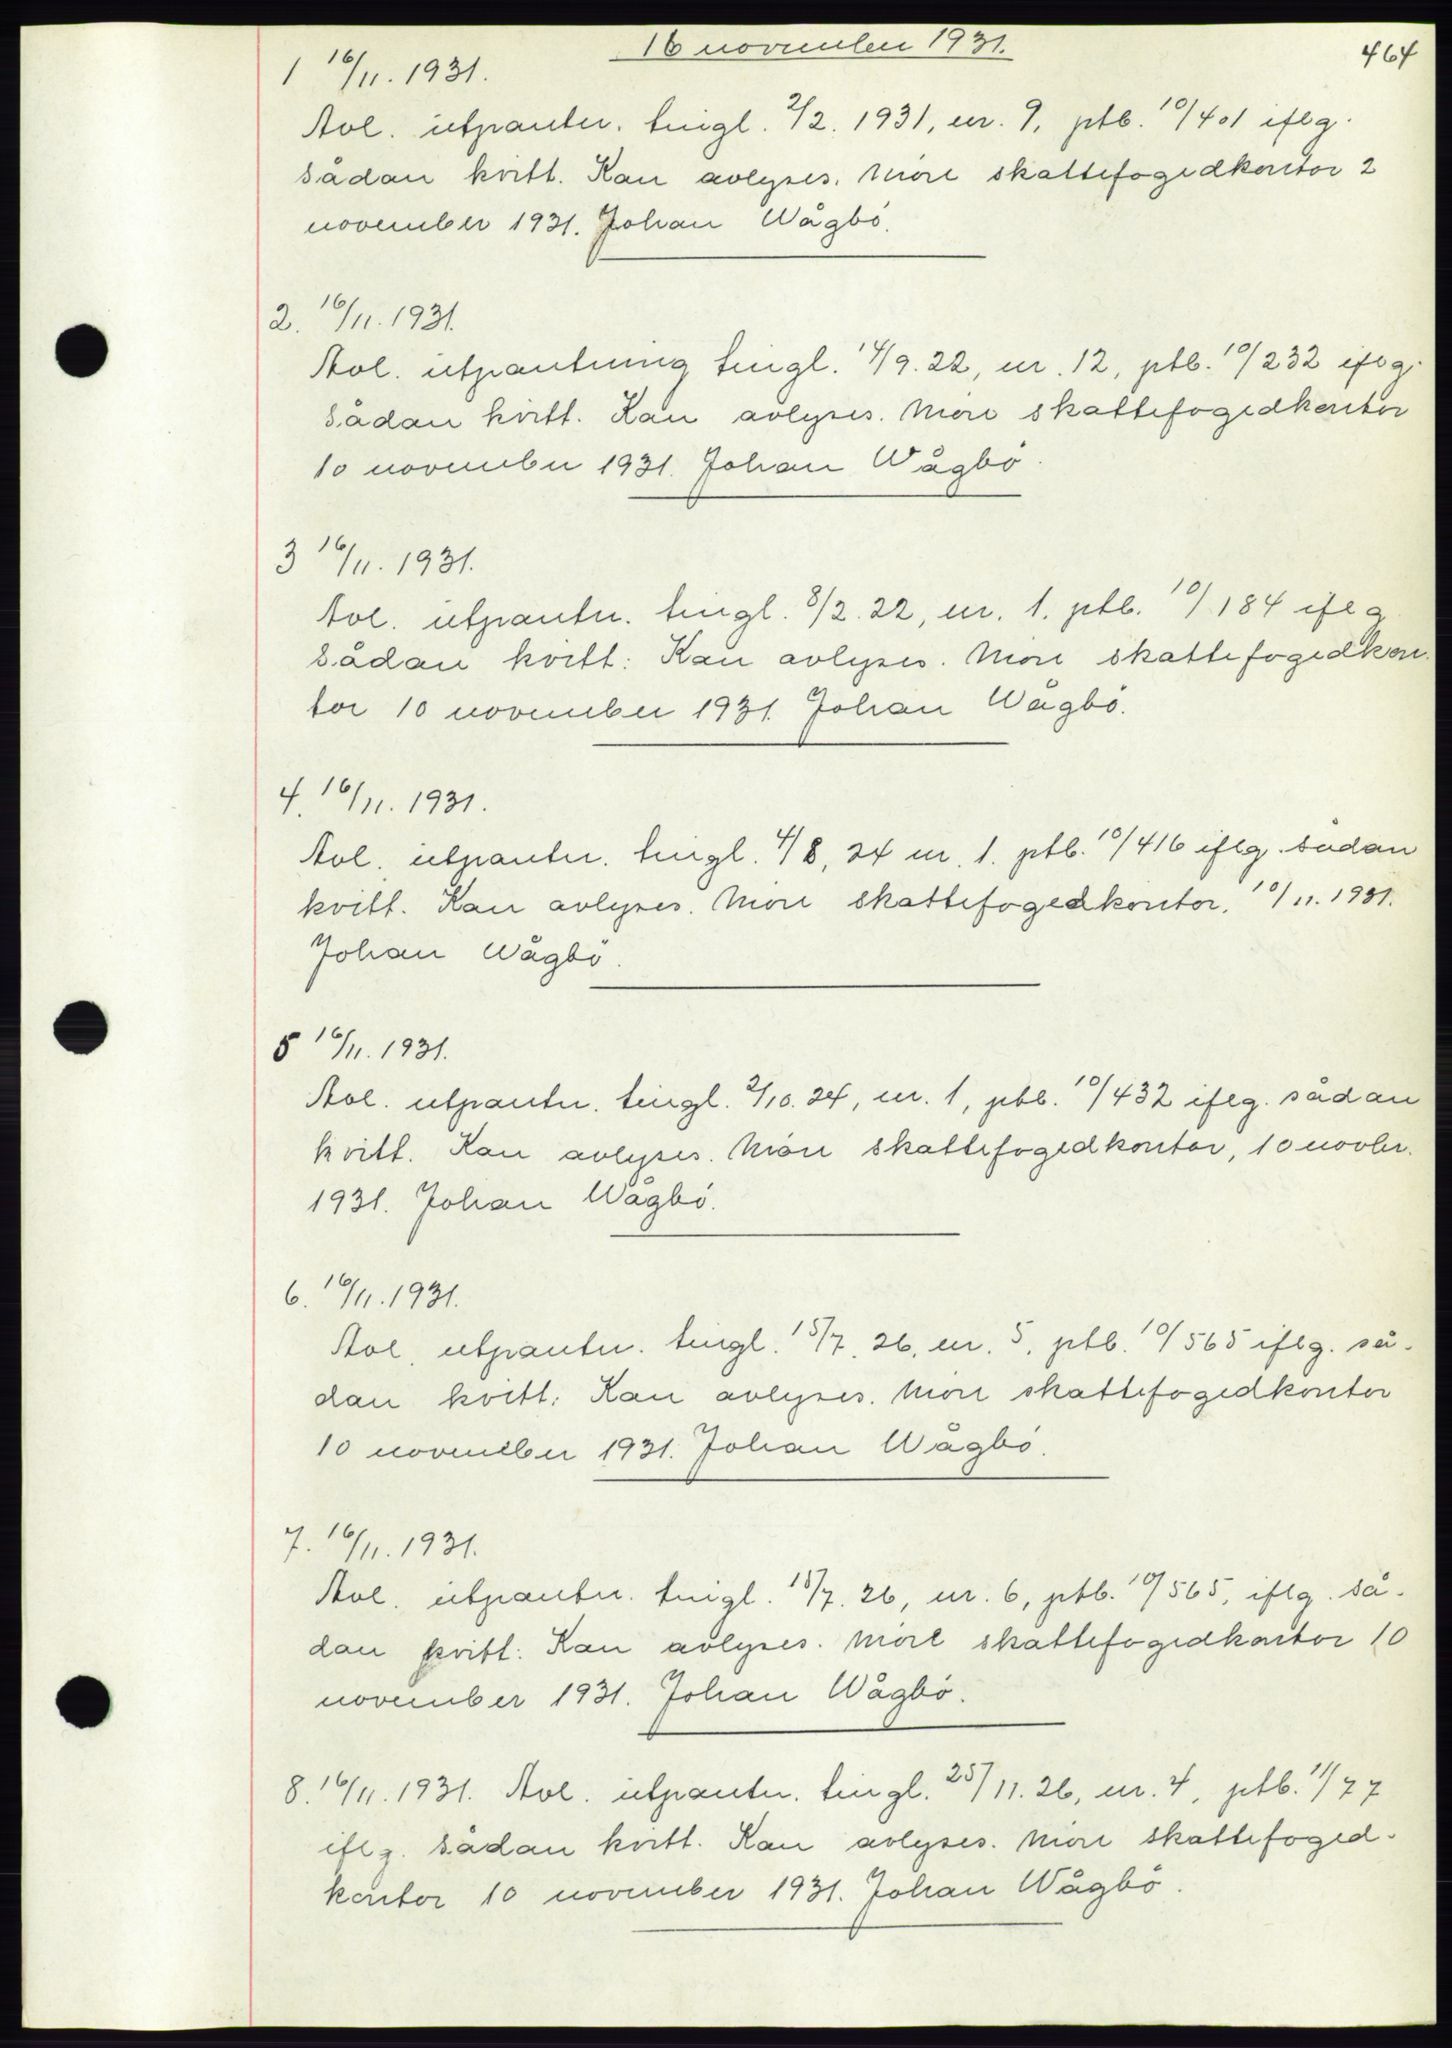 16 november 1931.
464
1 16/11. 1931.
Avl. utpantn. tingl. 2/2. 1931, nr. 9, ptb. 10/401 iflg.
sådan kvitt. Kan avlyses. Möre skattefogedkontor 2
november 1931. Johan Wågbö.
2. 16/11. 1931.
Avl. utpantning tingl. 14/9. 22, nr. 12, ptb. 10/232 iflg.
sådan kvitt. Kan avlyses. Möre skattefogedkontor
10 november 1931. Johan Wågbö.
3 16/11. 1931.
Avl. utpantn. tingl. 8/2. 22, nr. 1. ptb. 10/184 iflg
sådan kvitt: Kan avlyses. Möre skattefogedkon-
tor 10 november 1931. Johan Wågbö.
4. 16/11. 1931.
Avl. utpantn. tingl. 4/8, 24 nr. 1. ptb. 10/416 iflg. sådan
kvitt. Kan avlyses. Möre skattefogedkontor, 10/11. 1931.
Johan Wågbö.
5 16/11. 1931.
Avl. utpantn. tingl. 2/10. 24, nr. 1, ptb. 10/432 iflg. sådan
kvitt. Kan avlyses. Möre skattefogedkontor, 10 novbr.
1931. Johan Wågbö.
6. 16/11. 1931.
Avl. utpantn. tingl. 15/7. 26, nr. 5, ptb. 10/565 iflg. så-
dan kvitt: Kan avlyses. Möre skattefogedkontor
10 november 1931. Johan Wågbö.
7. 16/11. 1931.
Avl. utpantn. tingl. 15/7. 26, nr. 6, ptb. 10/565, iflg. så-
dan kvitt: Kan avlyses. Möre skattefogedkontor 10
november 1931. Johan Wågbö.
8. 16/11. 1931. Avl. utpantn. tingl. 25/11. 26, nr. 4, ptb. 11/77
iflg. sådan kvitt. Kan avlyses. Möre skattefoged-
kontor 10 november 1931. Johan Wågbö.